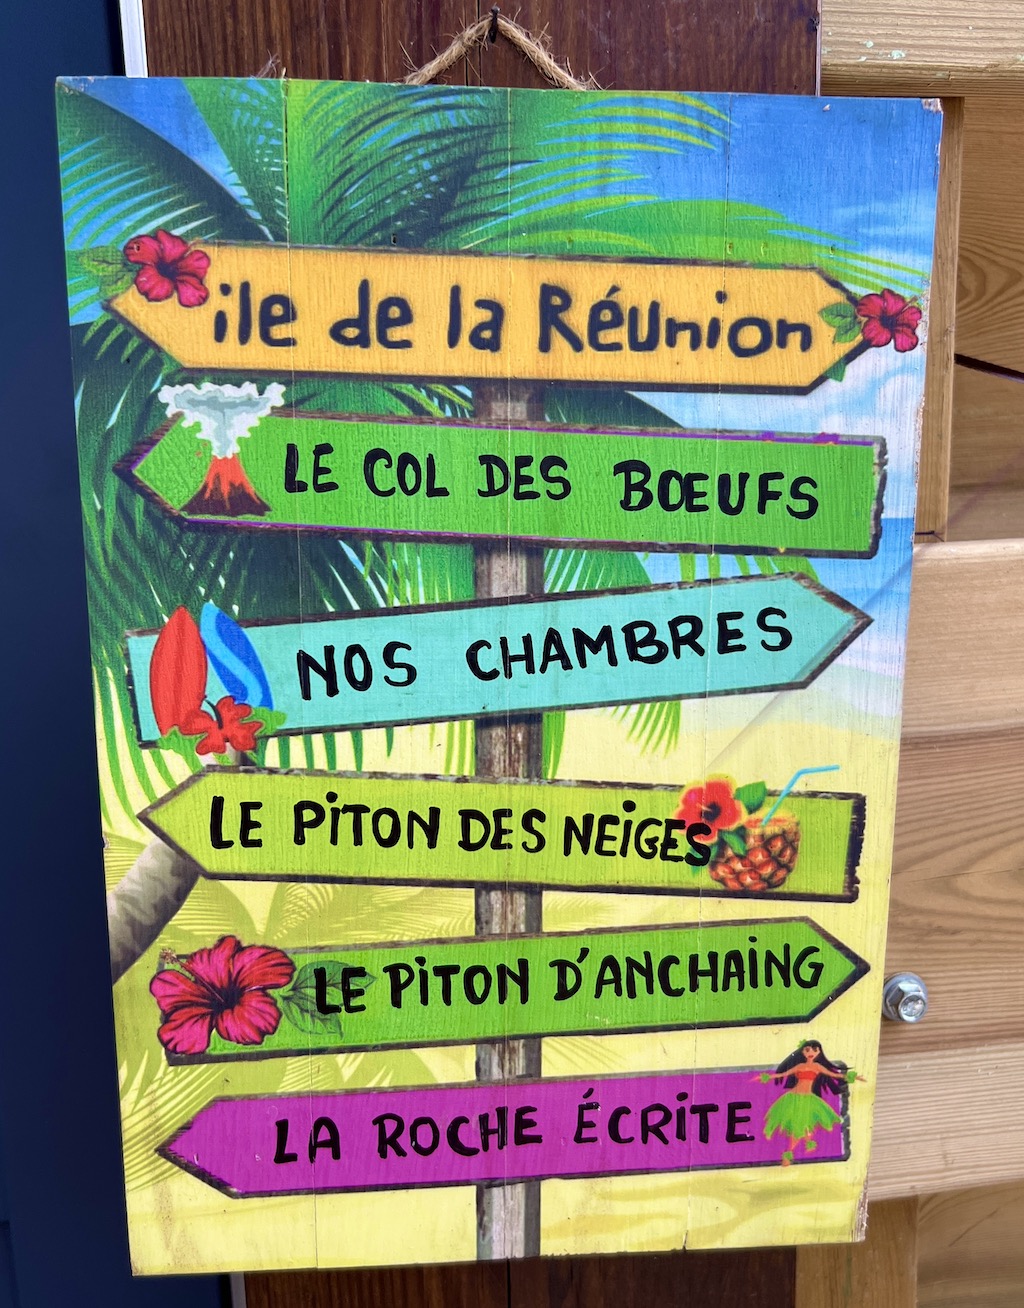 île de la Réunion
LE COL DES BŒUFS
NOS CHAMBRES
LE PiTON DES NEiGES
LE PiTON D'ANCHAiNG
LA ROCHE ÉCRiTE